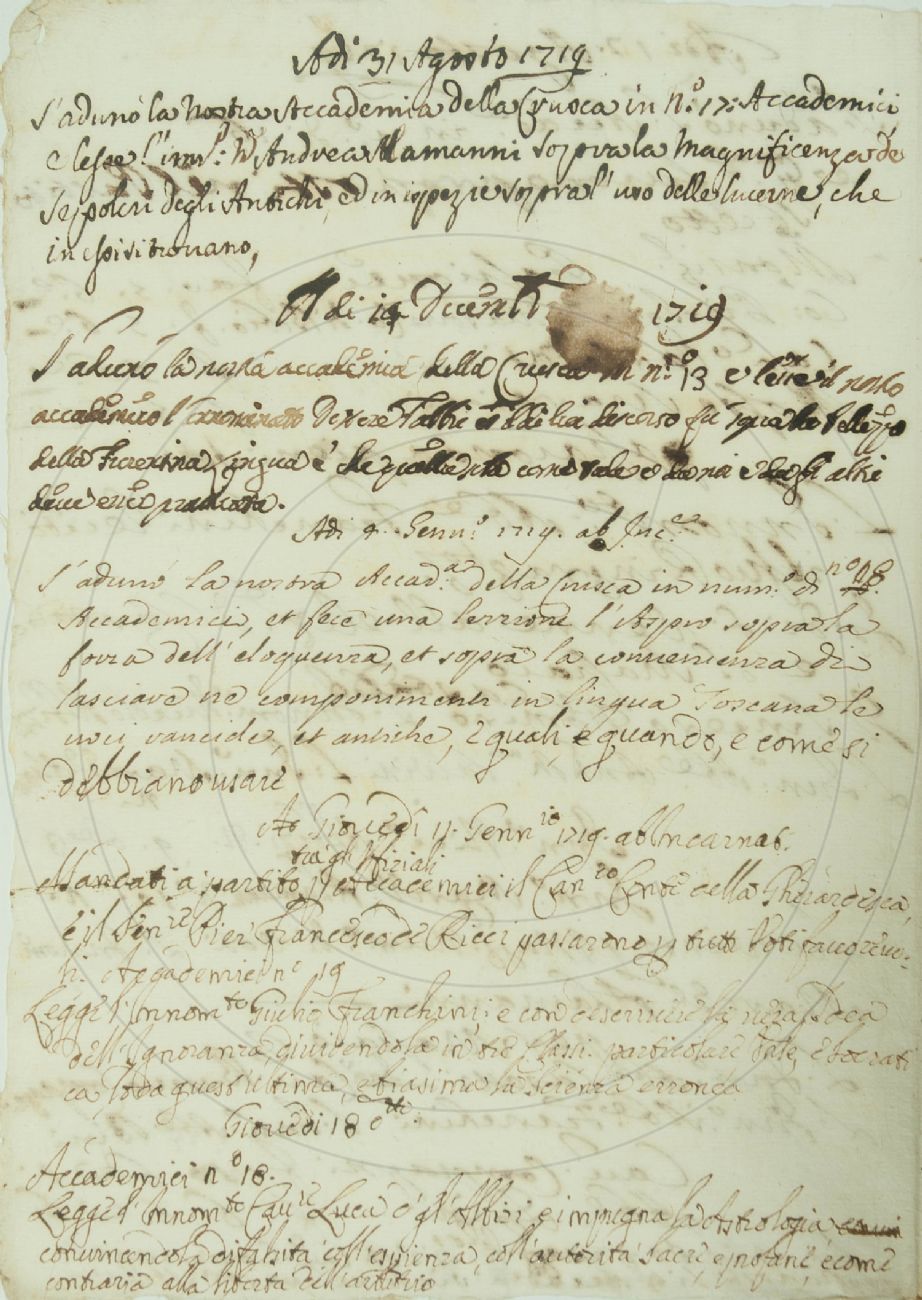 Adi 31 Agosto 1719.
S'adunò la nostra Accademia della Crusca in N.º 17: Accademici
e lesse l' Inn.º: Andrea Alamanni sopra la Magnificenza de
sepolcri degli Antichi, ed in ispezie sopra l' uso delle lucerne, che
in essi si trovano,
A di 14 Dicembre 1719
S'adunò la nostra accademia della Crusca in n.º 13 e lesse il nostro
accademico l'Innominato discorso fu quale bellezza
della Fiorentina Lingua e che come
deve esser praticata.
Adi 4. Genn.º 1719. ab Inc.ne
S'adunò la nostra Accad.a della Crusca in num.º di n.º 18.
Accademici, et fece una lezzione l'Aspro sopra la
forza dell' eloquenza, et sopra la convenienza di
lasciare ne componimenti in lingua Toscana le
voci rancide, et antiche, e quali, e quando, e come si
debbiano usare
Ad Giovedì 11. Genn.io 1719. ab Incarnat.
tra gl' Ufiziali
Mandati a partito p Accademici il Can.co Conte della Gherardesca,
e il Sen.re Pier Francesco de Ricci passarono p tutti Voti favorevo-
li. Accademici n.º 19
Legge l'Innom.to Giulio Franchini; e con descrivere la vera Idea
dell' Ignoranza, dividendola in tre Classi. particolare e Socrati
ca, loda quest' ultima, e biasima la scienza erronea
Giovedì 18 d.tto
Accademici n.º 18.
Legge l'Innom.to Cav.re Luca degl'Albizi, e impugna la Astrologia,
convincendola di falsità coll' esperienza, coll' autorità sacre, e profane, e come
contraria alla libertà dell' arbitrio